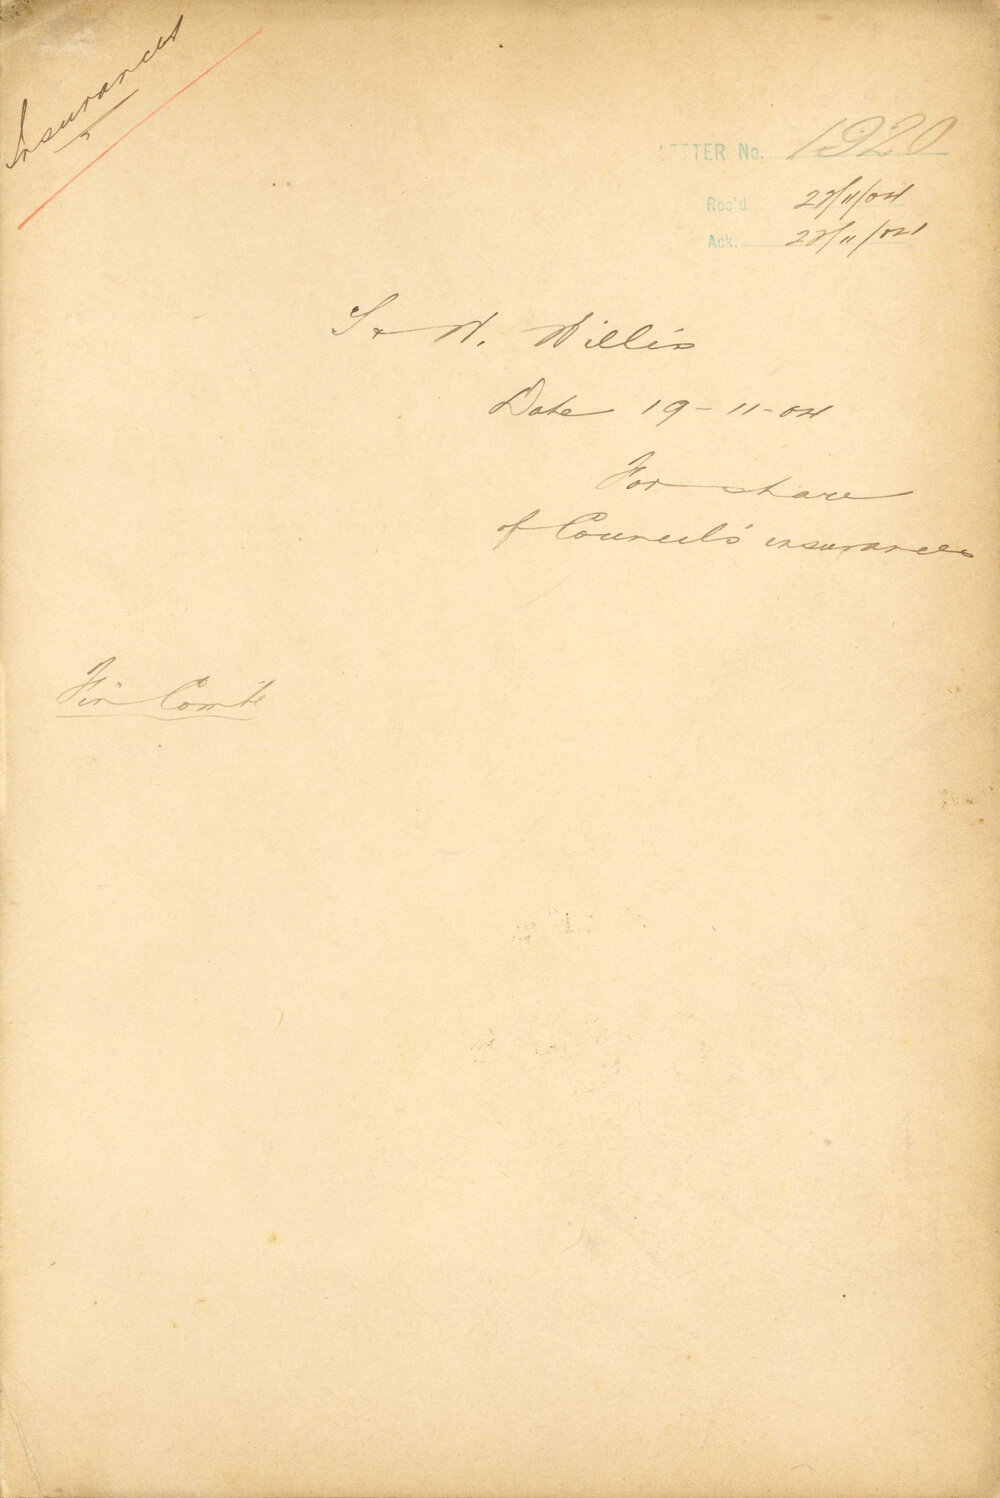 Insurances
LETTER No. 1920
Rec'd 22/11/04
Ack. 22/11/04
S & W. Willis
Date 19-11-04
For share
of Council's insurances
Fin Comte